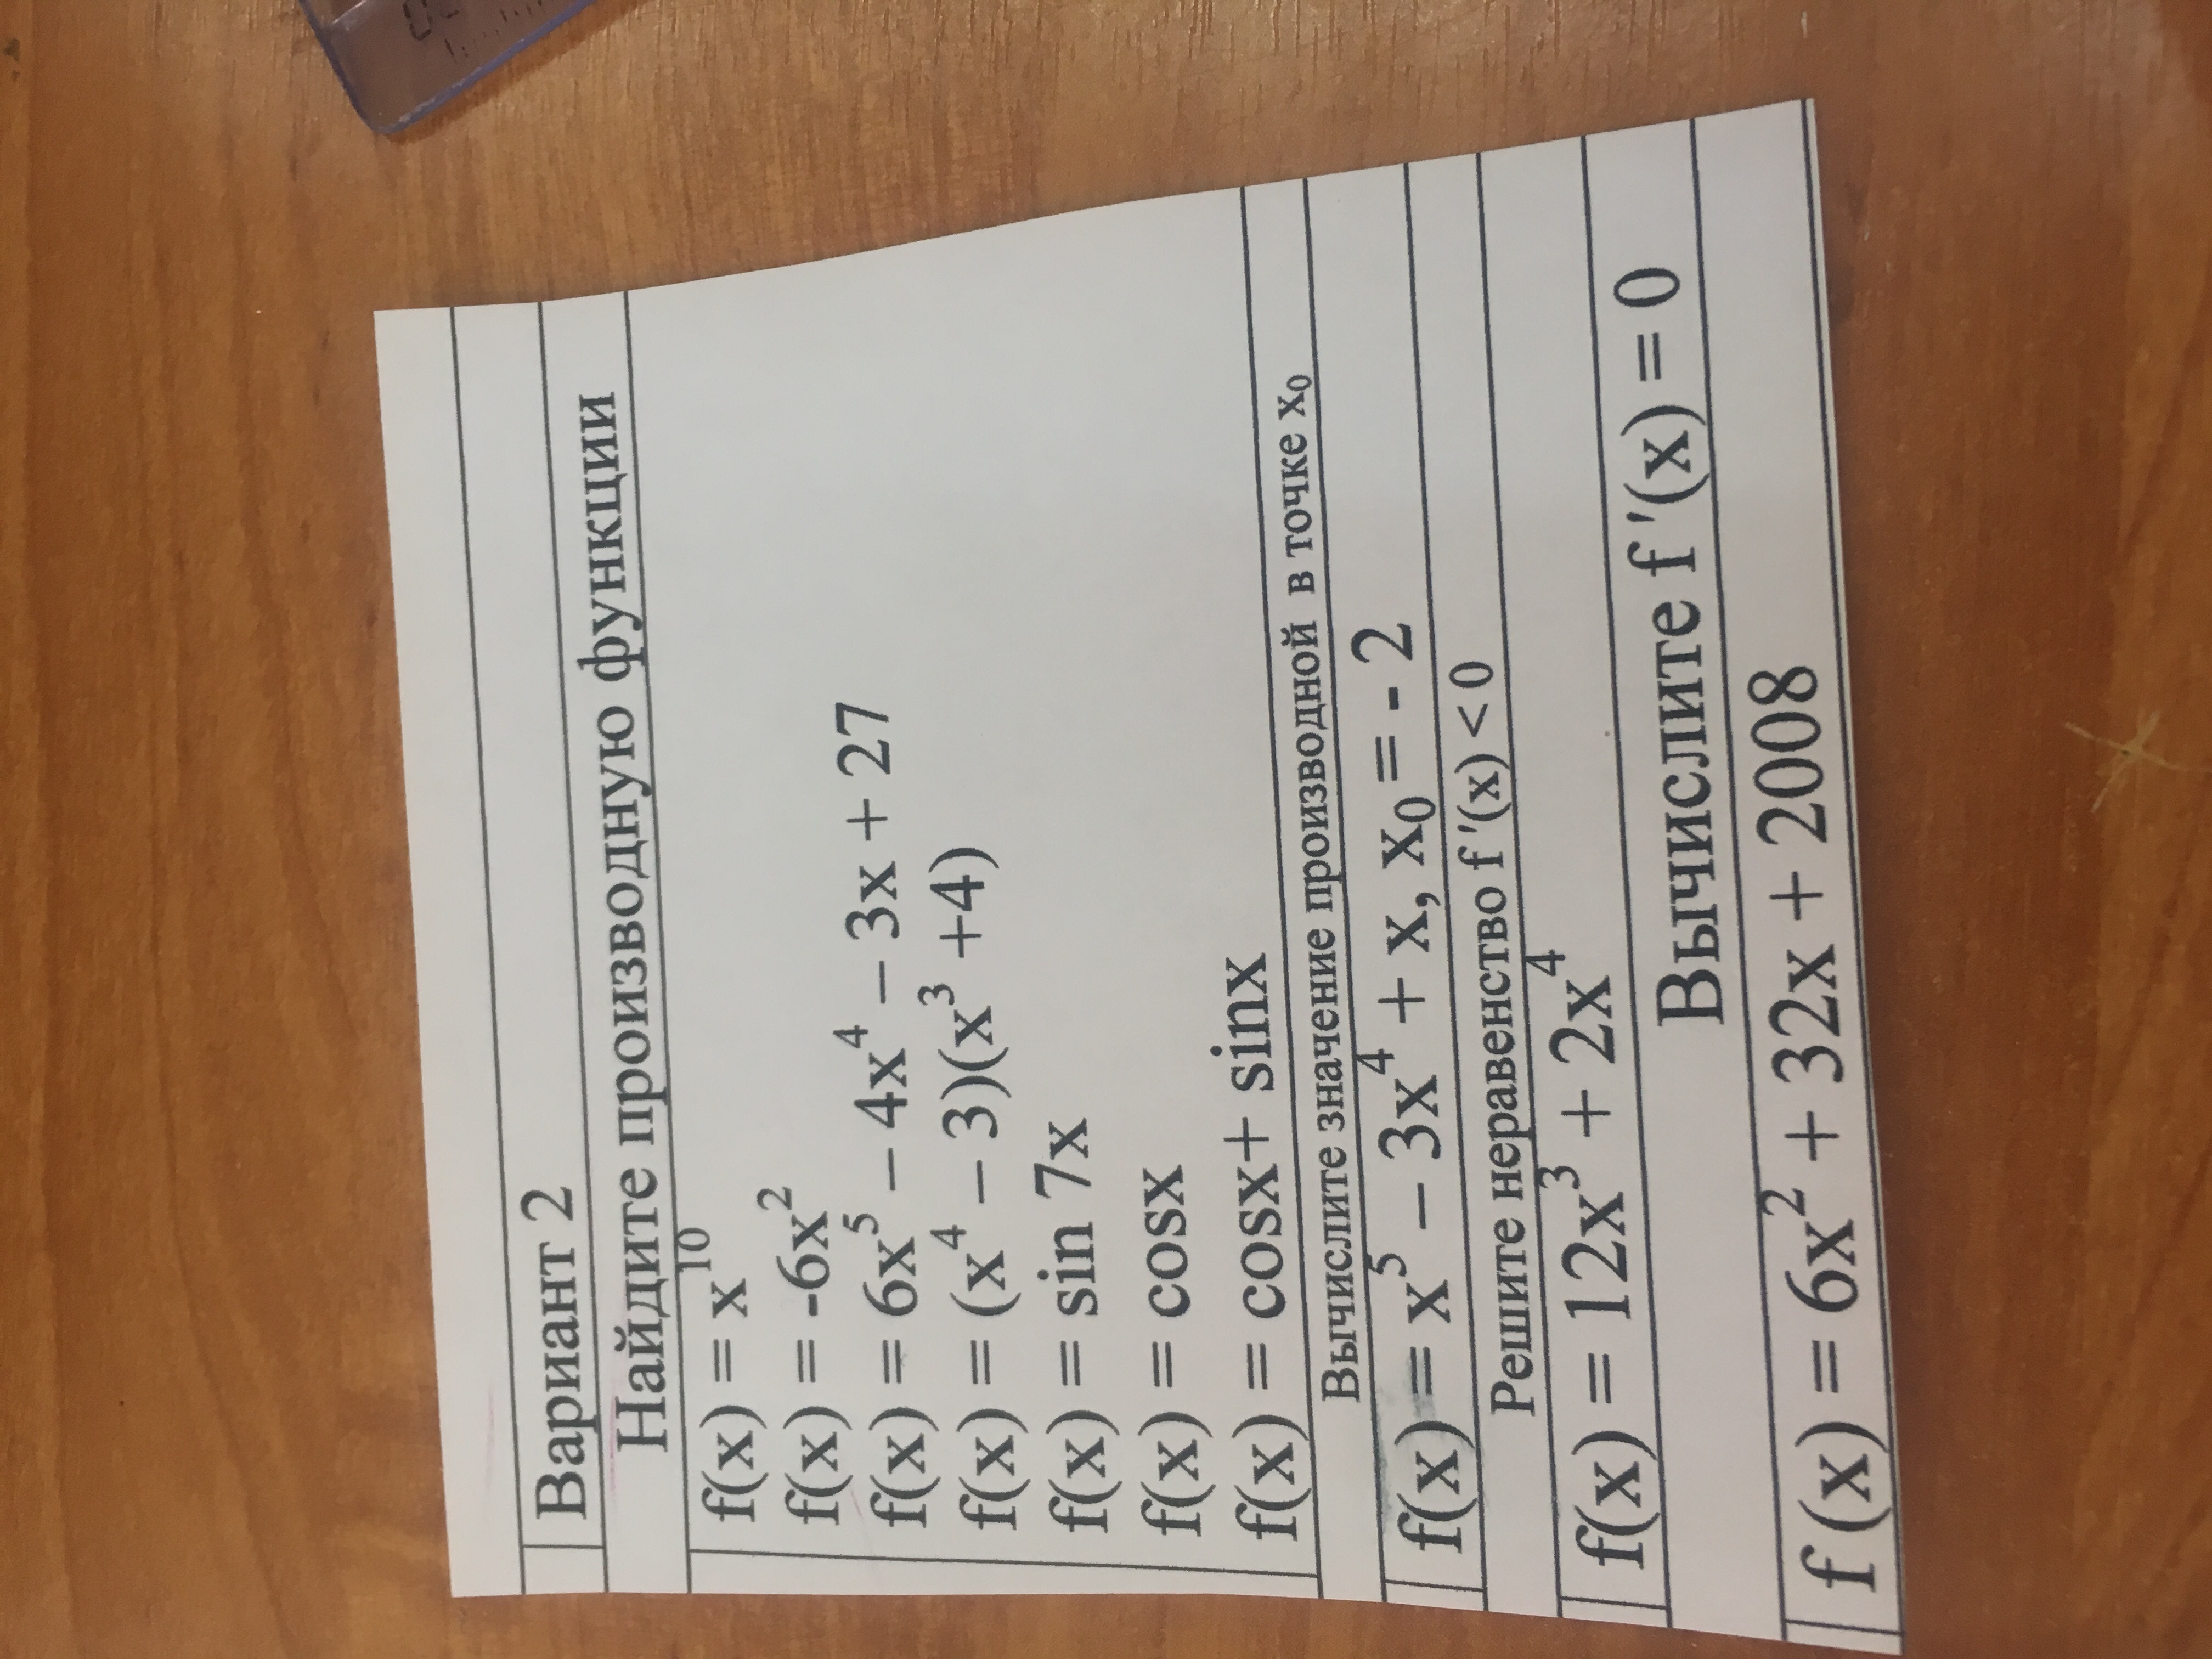 Вариант 2
Найдите производную функции
f(x) = x¹⁰
f(x) = -6x²
f(x) = 6x⁵ – 4x⁴ – 3x + 27
f(x) = (x⁴ – 3)(x³ +4)
f(x) = sin 7x
f(x) = cosx
f(x) = cosx+ sinx
Вычислите значение производной в точке x₀
f(x) = x⁵ – 3x⁴ + x, x₀ = - 2
Решите неравенство f ′(x) < 0
f(x) = 12x³ + 2x⁴
Вычислите f ′(x) = 0
f (x) = 6x² + 32x + 2008